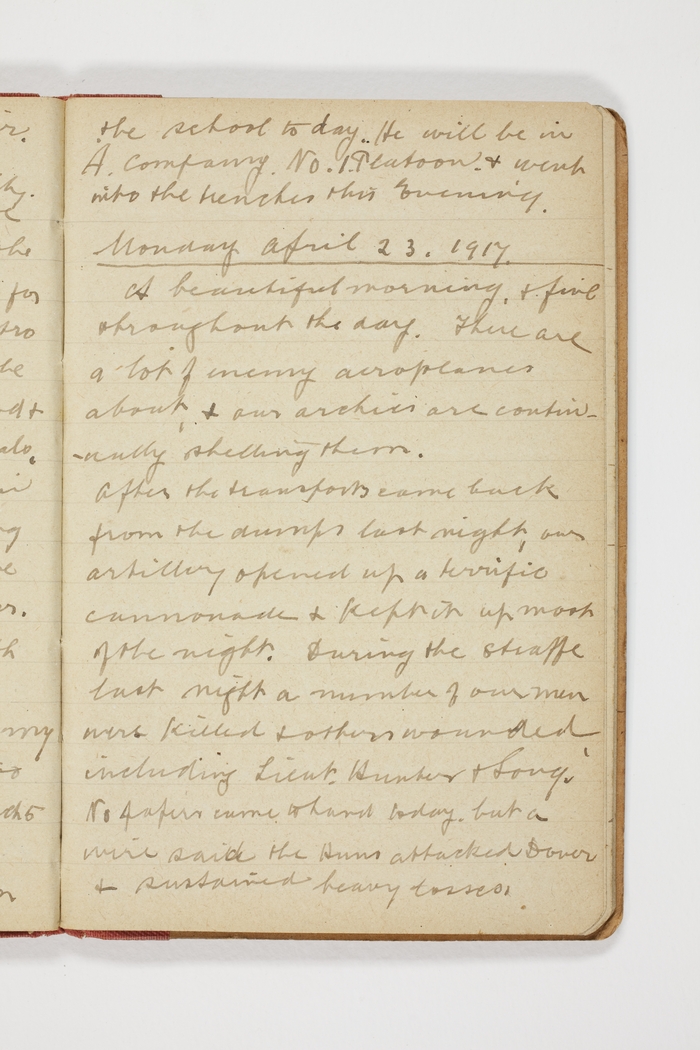 the school today. He will be in
A. Company. No. 1. Platoon. & went
into the trenches this Evening.
Monday April 23. 1917.
A beautiful morning, & fine
throughout the day. There are
a lot of enemy aeroplanes
about, & our archies are contin-
-ually shelling them.
After the transports came back
from the dumps last night, our
artillery opened up a terrific
cannonade & kept it up most
of the night. During the straffe
last night a number of our men
were killed & others wounded
including Lieut. Hunter & Long.
No papers came to hand today. but a
wire said the Huns attacked Dover
& sustained heavy losses.